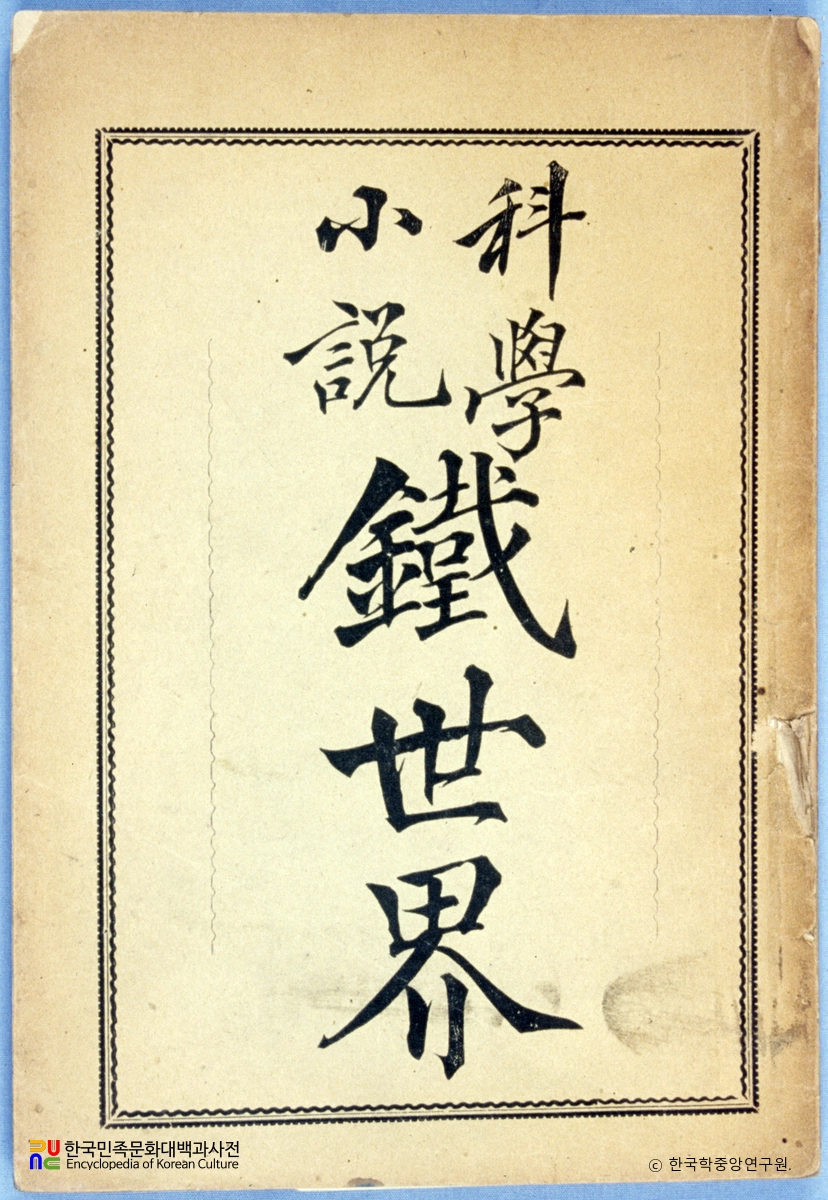 科學
小說
鐵世界
한국민족문화대백과사전
Encyclopedia of Korean Culture
ⓒ 한국학중앙연구원.